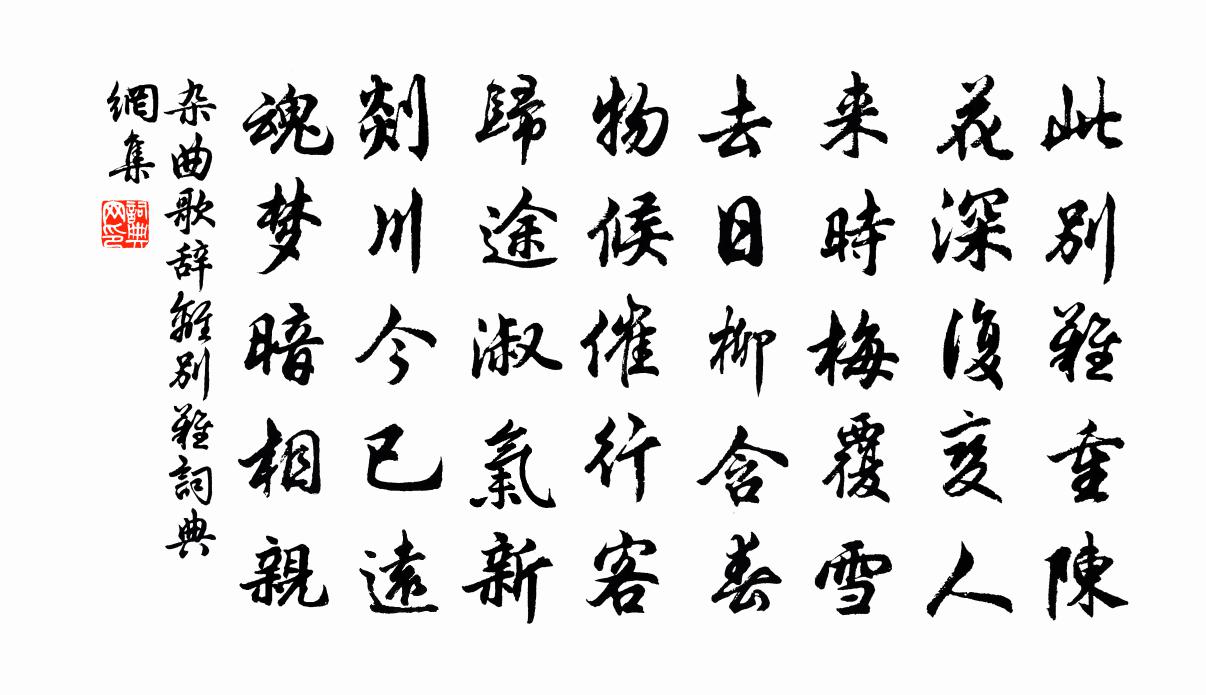 此别難重陳
花深復變人
来時梅覆雪
去日柳含春
物候催行客
歸途淑氣新
剡川今已遠
魂梦暗相親
杂曲歌辞離别難詞典
網集
詞典
网印